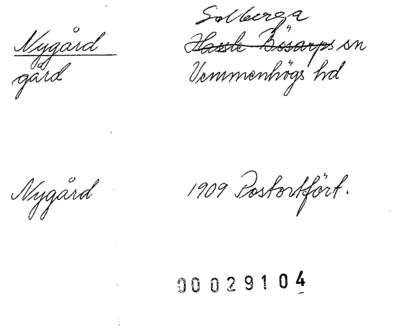 Solberga
Nygård Hassle Bösarps sn
gård Vemmenhögs hd
Nygård 1909 Postortfört.
00029104